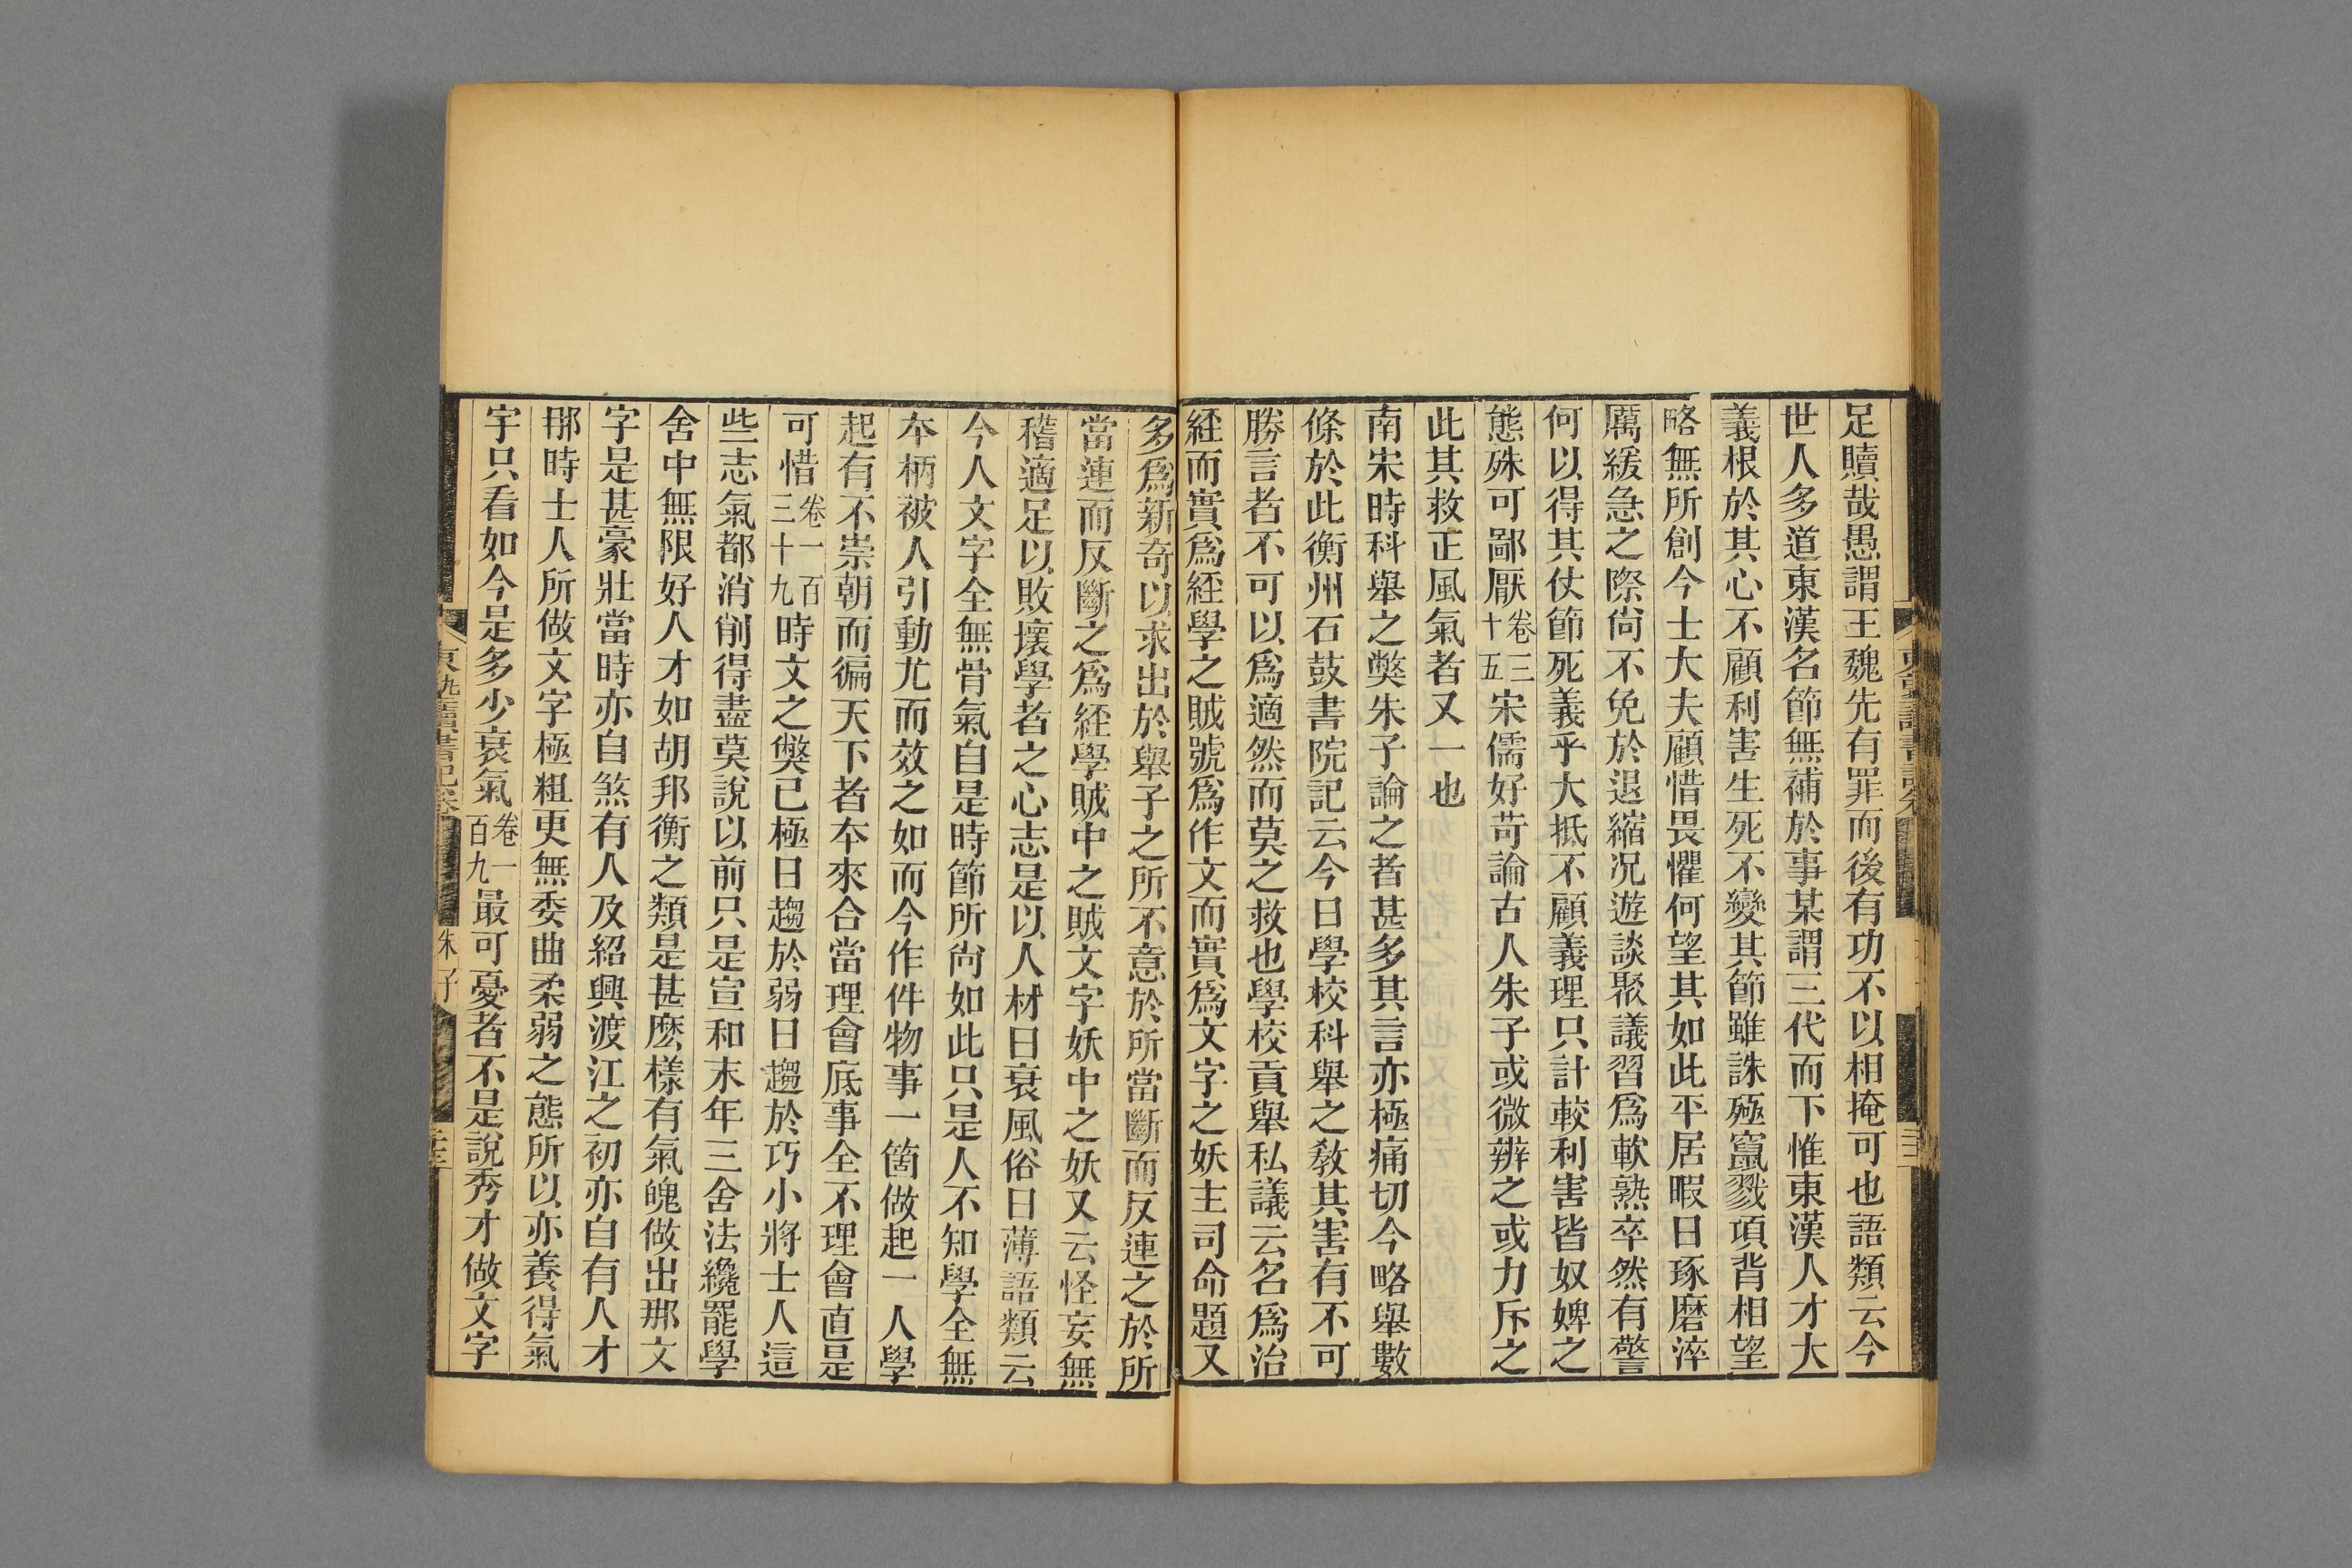 足贖哉愚謂王魏先有罪而後有功不以相掩可也語類云今
世人多道東漢名節無補於事某謂三代而下惟東漢人才大
義根於其心不顧利害生死不變其節雖誅殛竄戮項背相望
略無所創今士大夫顧惜畏懼何望其如此平居暇日琢磨淬
厲緩急之際尙不免於退縮況遊談聚議習爲軟熟卒然有警
何以得其仗節死義乎大抵不顧義理只計較利害皆奴婢之
態殊可鄙厭卷三十五宋儒好苛論古人朱子或微辨之或力斥之
此其救正風氣者又一也
南宋時科舉之獘朱子論之者甚多其言亦極痛切今略舉數
條於此衡州石鼓書院記云今日學校科舉之敎其害有不可
勝言者不可以爲適然而莫之救也學校貢舉私議云名爲治
經而實爲經學之賊號爲作文而實爲文字之妖主司命題又
多爲新奇以求出於舉子之所不意於所當斷而反連之於所
當連而反斷之爲經學賊中之賊文字妖中之妖又云怪妄無
稽適足以敗壞學者之心志是以人材日衰風俗日薄語類云
今人文字全無骨氣自是時節所尙如此只是人不知學全無
本柄被人引動尤而效之如而今作件物事一箇做起一人學
起有不崇朝而徧天下者本來合當理會底事全不理會直是
可惜卷一百三十九時文之獘已極日趨於弱日趨於巧小將士人這
些志氣都消削得盡莫說以前只是宣和末年三舍法纔罷學
舍中無限好人才如胡邦衡之類是甚麽樣有氣魄做出那文
字是甚豪壯當時亦自煞有人及紹興渡江之初亦自有人才
那時士人所做文字極粗更無委曲柔弱之態所以亦養得氣
宇只看如今是多少衰氣卷一百九最可憂者不是說秀才做文字
朱子